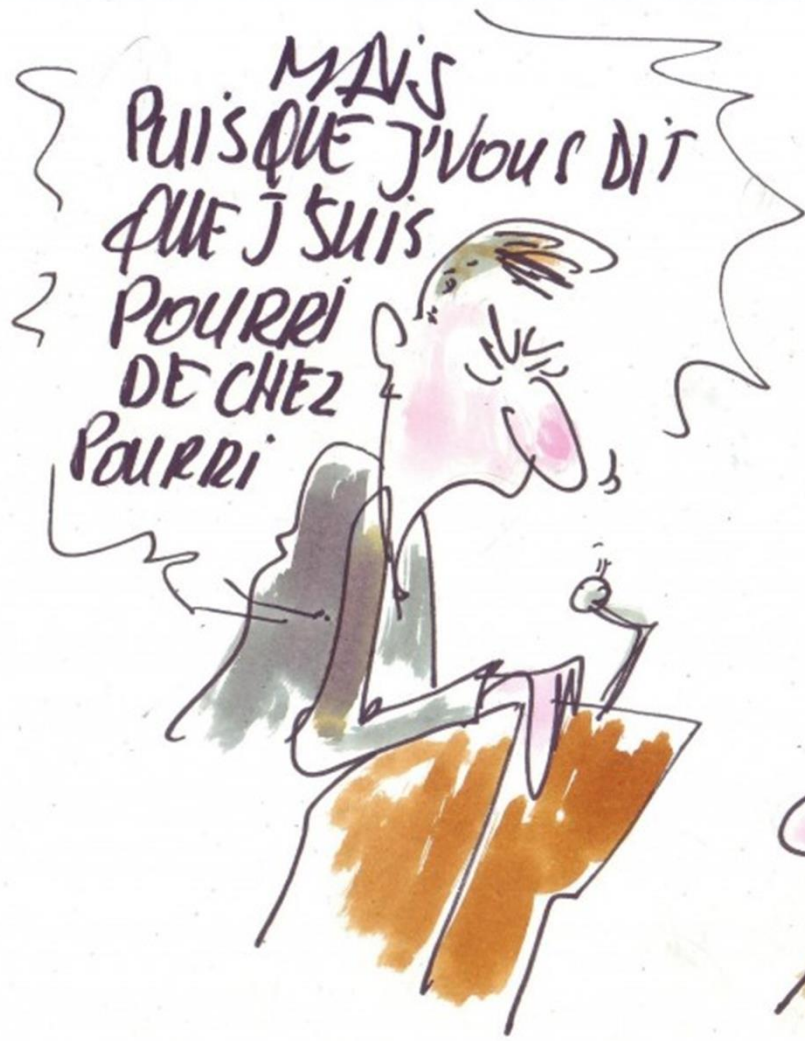 MAIS
PUISQUE J'VOUS DIT
QUE J'SUIS
POURRI
DE CHEZ
POURRI